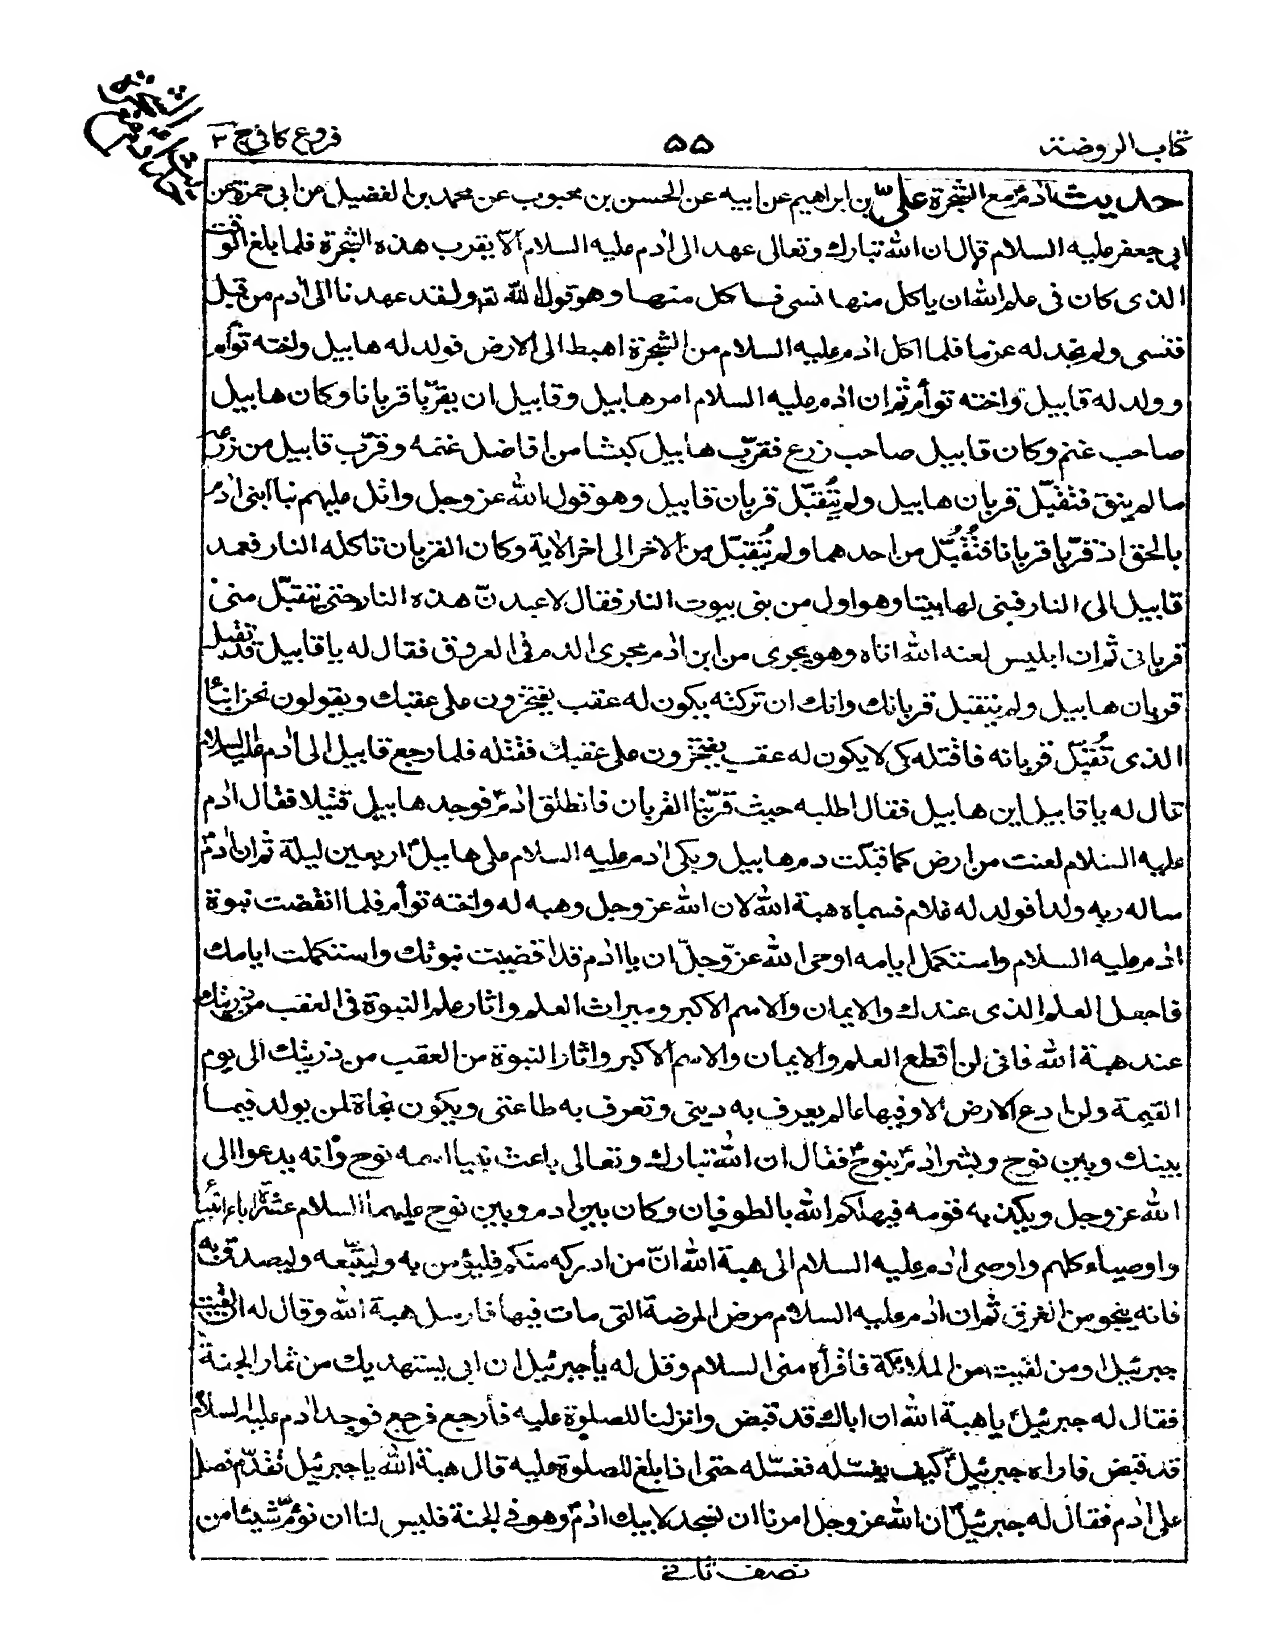 كتاب الروضة
۵۵
فروع كافي ج ۳
حديث ادم ع مع الشجرة علىّ بن ابراهيم عن ابيه عن الحسن بن محبوب عن محمد بن الفضيل عن ابى حمزة عن
ابى جعفر عليه السلام قال ان الله تبارك وتعالى عهد الى ادم عليه السلام الا يقرب هذه الشجرة فلما بلغ الوقت
الذى كان فى علم الله ان ياكل منها نسى فاكل منها وهو قول الله تعم ولقد عهدنا الى ادم من قبل
فنسى ولم نجد له عزما فلما اكل ادم عليه السلام من الشجرة اهبط الى الارض فولد له هابيل واخته توأم
وولد له قابيل واخته توأم ثم ان ادم عليه السلام امر هابيل وقابيل ان يقرّبا قربانا وكان هابيل
صاحب غنم وكان قابيل صاحب زرع فقرّب هابيل كبشا من افاضل غنمه وقرّب قابيل من زرعه
ما لم ينق فتقبّل قربان هابيل ولم يُتقبّل قربان قابيل وهو قول الله عز وجل واتل عليهم نبا ابنى ادم
بالحق اذ قرّبا قربانا فتُقُبّل من احدهما ولم يُتقبّل من الاخر الى اخر الاية وكان القربان تاكله النار فعمد
قابيل الى النار فبنى لها بيتا وهو اول من بنى بيوت النار فقال لاعبدنّ هذه النار حتى يتقبّل منى
قربانى ثم ان ابليس لعنه الله اتاه وهو يجرى من ابن ادم مجرى الدم فى العروق فقال له يا قابيل قد تقبل
قربان هابيل ولم يتقبل قربانك وانك ان تركته يكون له عقب يفتخرون على عقبك ويقولون نحن ابناء
الذى تُقبّل قربانه فاقتله كى لا يكون له عقب يفتخرون على عقبك فقتله فلما رجع قابيل الى ادم عليه السلام
قال له يا قابيل اين هابيل فقال اطلبه حيث قرّبنا القربان فانطلق ادم ع فوجد هابيل قتيلا فقال ادم
عليه السلام لعنت من ارض كما قبلت دم هابيل وبكى ادم عليه السلام على هابيل اربعين ليلة ثم ان ادم ع
سال ربه ولدا فولد له غلام فسماه هبة الله لان الله عز وجل وهبه له واخته توأم فلما انقضت نبوة
ادم عليه السلام واستكمل ايامه اوحى الله عزّ وجلّ ان يا ادم قد اقضيت نبوتك واستكملت ايامك
فاجعل العلم الذى عندك والايمان والاسم الاكبر وميراث العلم واثار علم النبوة فى العقب من ذريتك
عند هبة الله فانى لن اقطع العلم والايمان والاسم الاكبر واثار النبوة من العقب من ذريتك الى يوم
القيمة ولن ادع الارض الا وفيها عالم يعرف به دينى وتعرف به طاعتى ويكون نجاة لمن يولد فيما
بينك وبين نوح وبشر ادم ع بنوح ع فقال ان الله تبارك وتعالى باعث نبيا اسمه نوح وانه يدعوا الى
الله عز وجل ويكذبه قومه فيهلكم الله بالطوفان وكان بين ادم وبين نوح عليهما السلام عشرة اباء انبياء
واوصياء كلهم واوصى ادم عليه السلام الى هبة الله انّ من ادركه منكم فليؤمن به وليتّبعه وليصدق به
فانه ينجو من الغرق ثم ان ادم عليه السلام مرض المرضة التى مات فيها فارسل هبة الله وقال له ان لقيت
جبرئيل او من لقيت من الملائكة فاقرأه منى السلام وقل له يا جبرئيل ان ابى يستهديك من ثمار الجنة
فقال له جبرئيل يا هبة الله ان اباك قد قبض وانزلنا للصلوة عليه فارجع فرجع فوجد ادم عليه السلام
قد قبض فاراه جبرئيل ع كيف يغسّله فغسّله حتى اذا بلغ للصلوة عليه قال هبة الله يا جبرئيل تقدّم فصل
على ادم فقال له جبرئيل ع ان الله عز وجل امرنا ان نسجد لابيك ادم ع وهو فى الجنة فليس لنا ان نؤمّ شيئا من
نصف ثانى